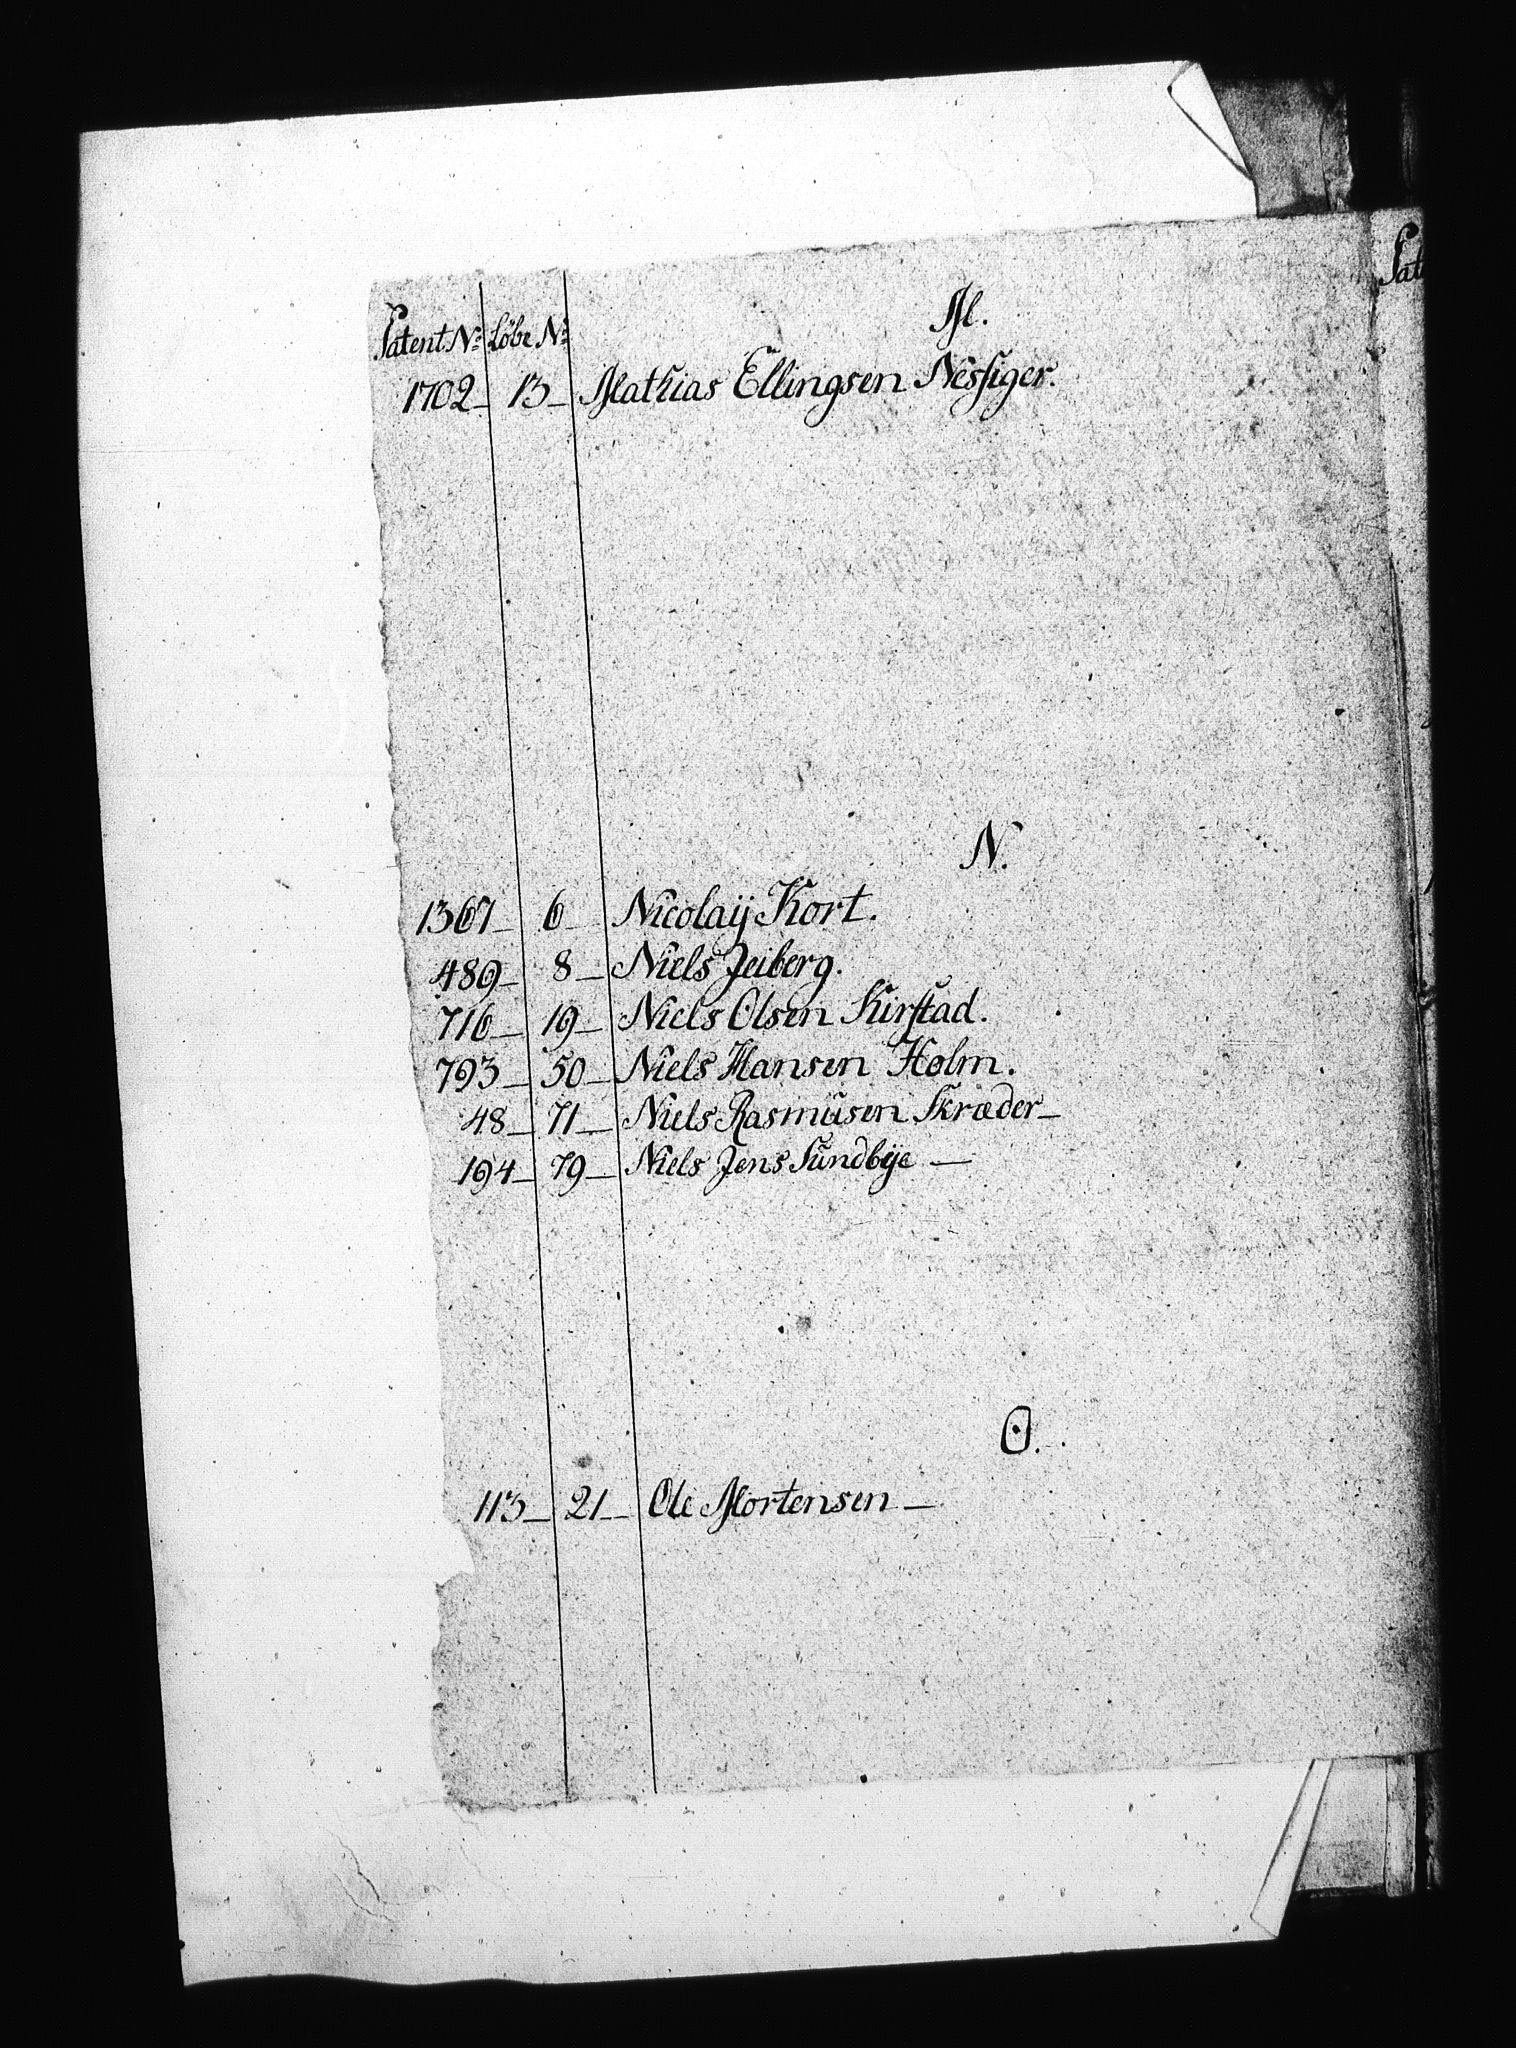 Patent No Löbe No
M.
1702 13 Mathias Ellingsen Nessiger.
N.
1367 6 Nicolaÿ Kort.
489 8 Niels Jeiberg.
716 19 Niels Olsen Kirstad.
793 50 Niels Hansen Holm.
48 71 Niels Rasmusen Skræder
194 79 Niels Jens Sundbÿe
O.
113 21 Ole Mortensen
Pat